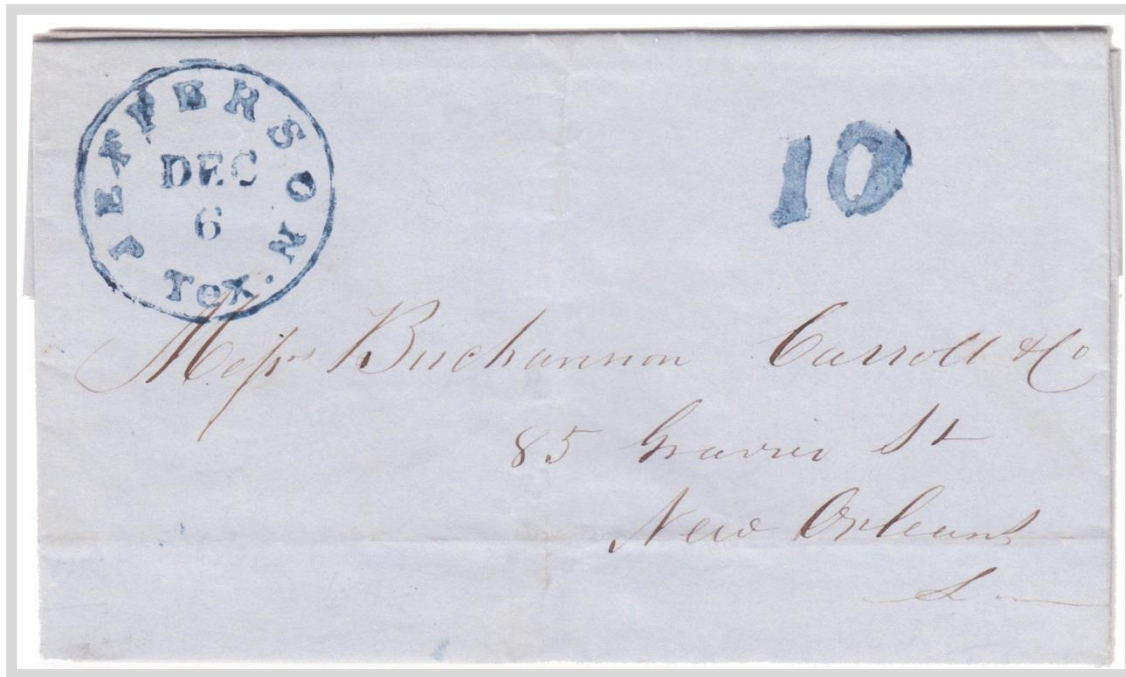 JEFFERSON
DEC
6
Tex.
10
Messrs Buchannon Carroll & Co
85 Gravier St
New Orleans